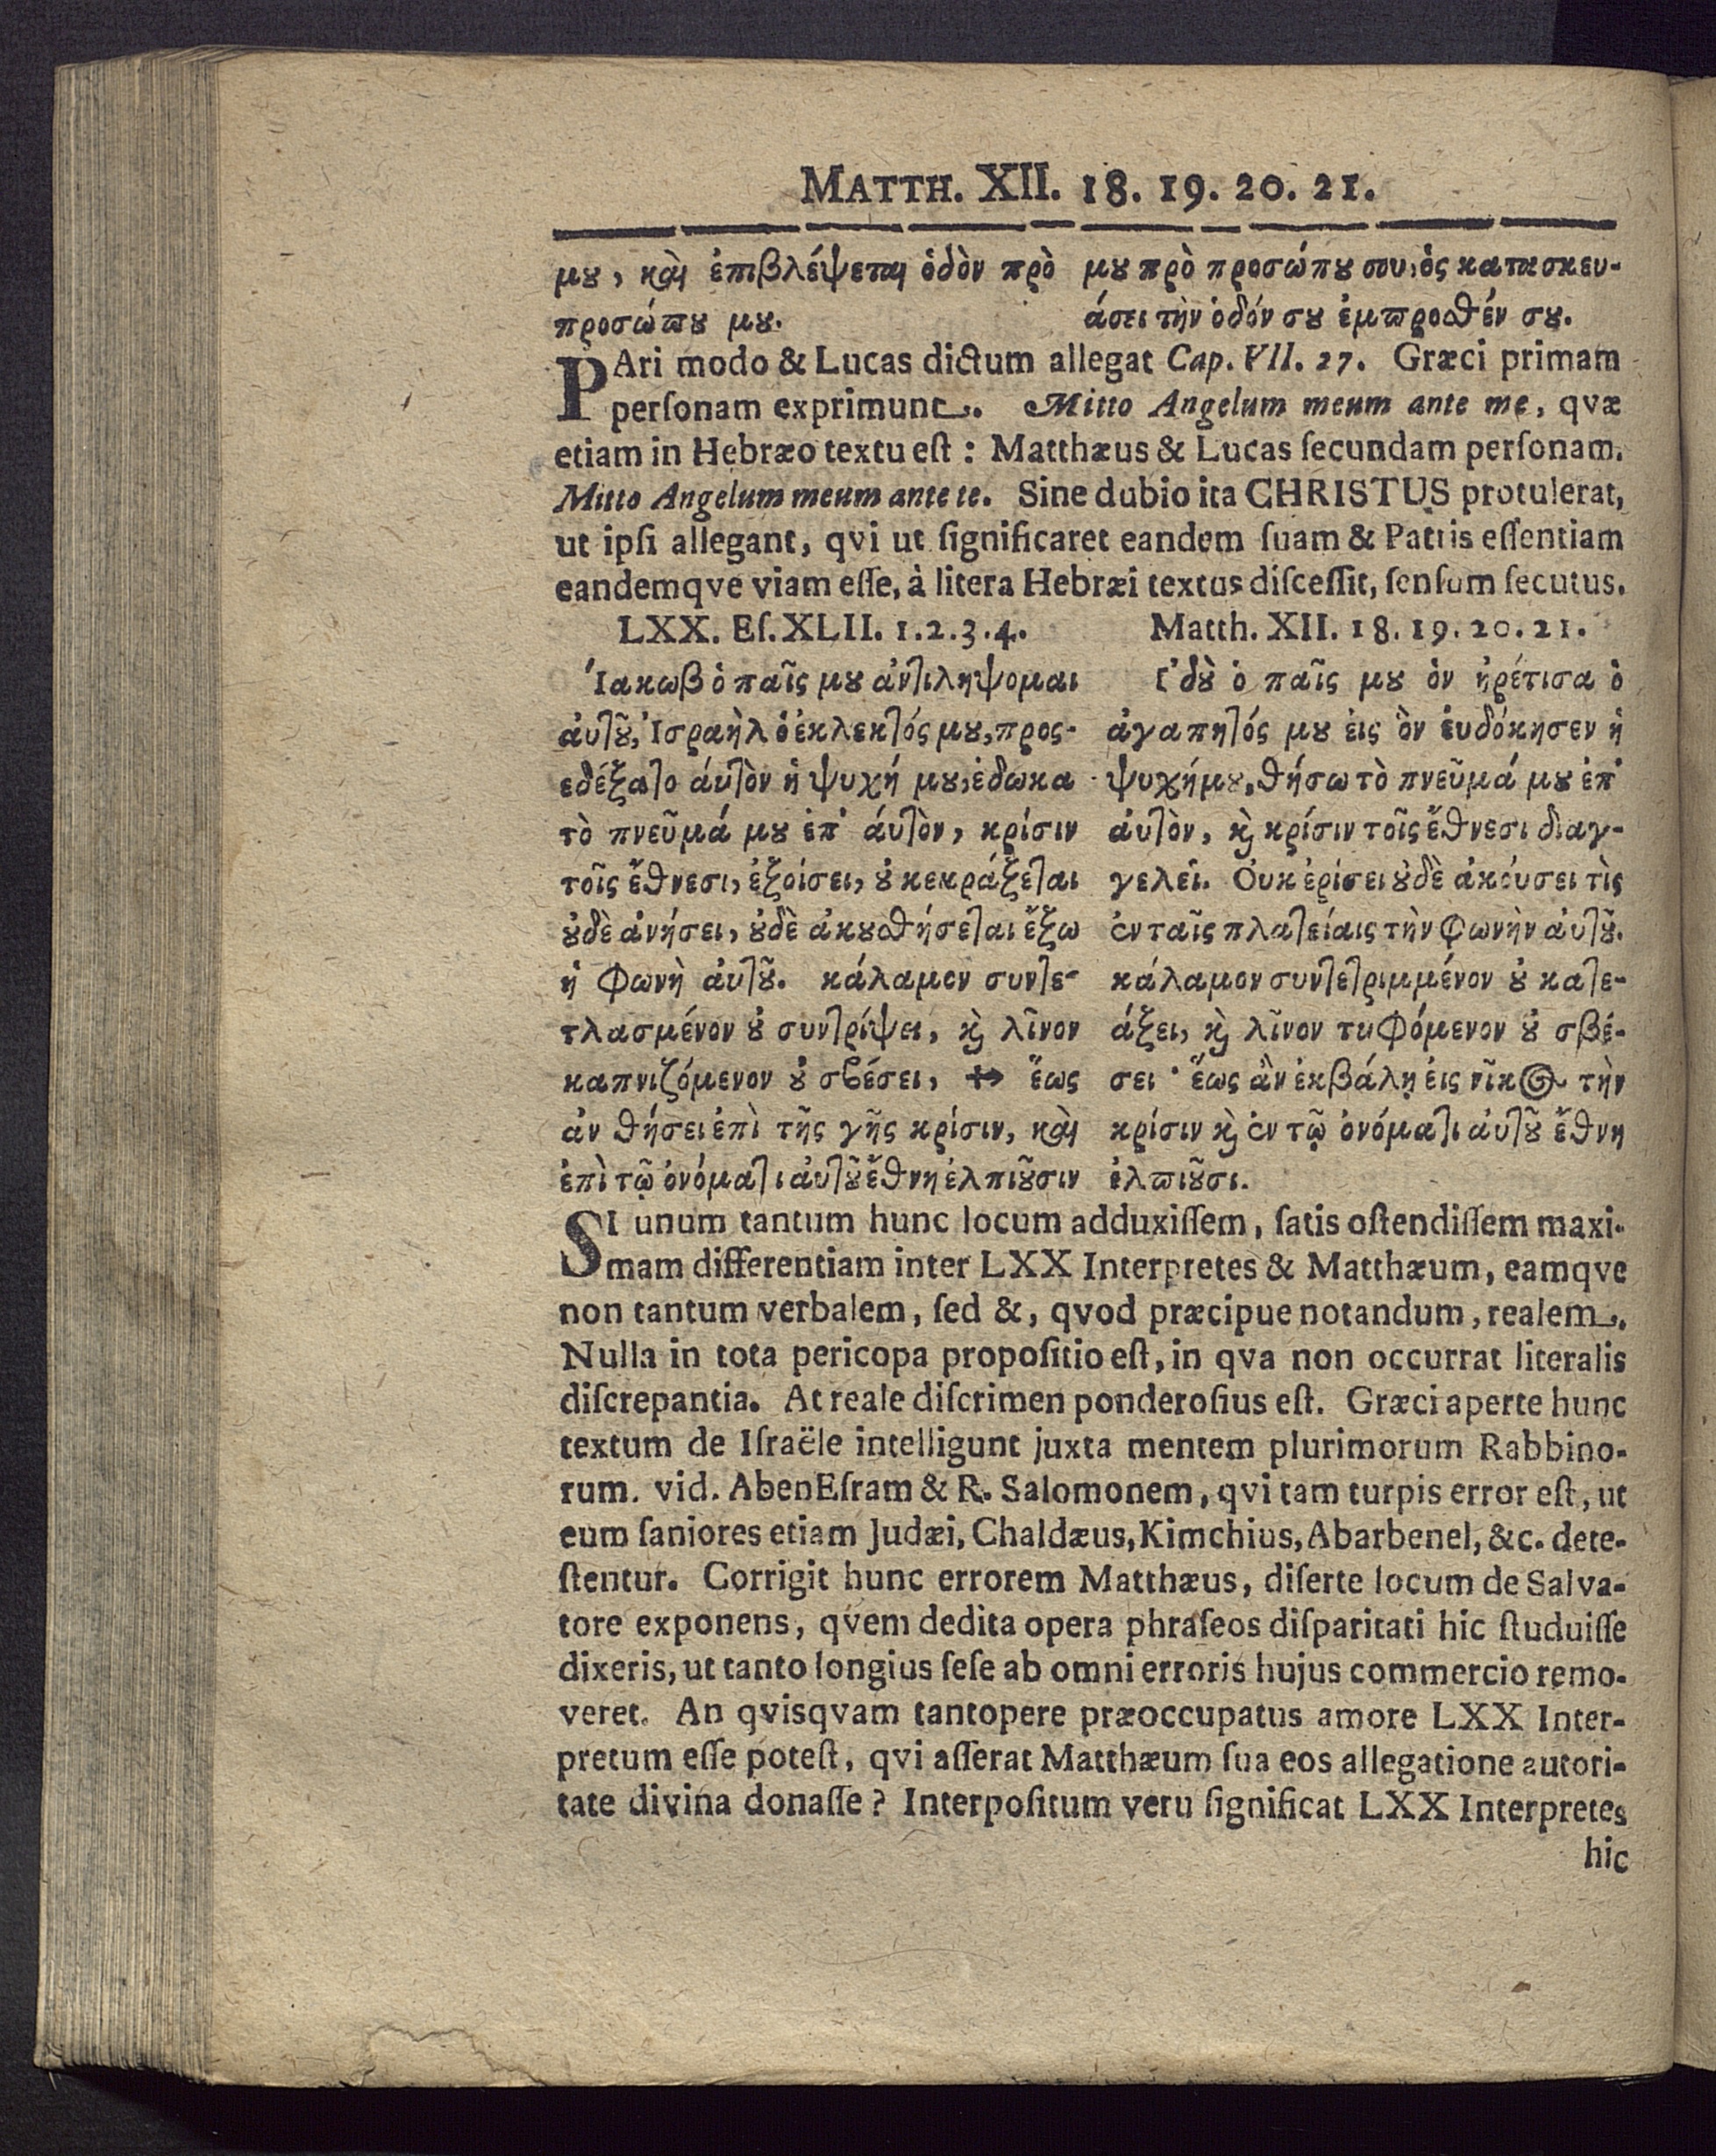 MATTH. XII. 18. 19. 20. 21.
μȣ, καὶ ἐπιβλέψεται ὁδὸν πρὸ
προσώπȣ μȣ.
μȣ πρὸ προσώπȣ σου, ὁς κατασκευ-
άσει τὴν ὁδόν σȣ ἐμπροσθέν σȣ.
PAri modo & Lucas dictum allegat Cap. VII. 27. Græci primam
perſonam exprimunt. Mitto Angelum meum ante me, qvæ
etiam in Hebræo textu eſt: Matthæus & Lucas ſecundam perſonam.
Mitto Angelum meum ante te. Sine dubio ita CHRISTUS protulerat,
ut ipſi allegant, qvi ut ſignificaret eandem ſuam & Patris eſſentiam
eandemqve viam eſſe, à litera Hebræi textus diſceſſit, ſenſum ſecutus.
LXX. Eſ. XLII. 1. 2. 3. 4.
Ἰακωβ ὁ παῖς μȣ ἀντιληψομαι
ἀυτȣ͂, Ἰσραὴλ ὁ ἐκλεκτός μȣ, προς-
εδέξατο ἀυτὸν ἡ ψυχή μȣ, ἐδωκα
τὸ πνεῦμά μȣ ἐπ' ἀυτὸν, κρίσιν
τοῖς ἔθνεσι, ἐξοίσει, ȣ κεκράξεται
ȣδὲ ἀνήσει, ȣδὲ ἀκȣσθήσεται ἔξω
ἡ φωνὴ ἀυτȣ͂. κάλαμον συντε-
τλασμένον ȣ συντρίψει, ϗ λῖνον
καπνιζόμενον ȣ σβέσει, ↔ ἕως
ἀν θήσει ἐπὶ τῆς γῆς κρίσιν, καὶ
ἐπὶ τῷ ὀνόματι ἀυτȣ͂ ἔθνη ἐλπιȣ͂σιν
Matth. XII. 18. 19. 20. 21.
Ἰδȣ̀ ὁ παῖς μȣ ὁν ἡρέτισα ὁ
ἀγαπητός μȣ ἐις ὃν ἐυδόκησεν ἡ
ψυχή μȣ, θήσω τὸ πνεῦμά μȣ ἐπ'
ἀυτὸν, ϗ κρίσιν τοῖς ἔθνεσι διαγ-
γελεῖ. Ὀυκ ἐρίσει ȣδὲ ἀκόυσει τὶς
ἐν ταῖς πλατείαις τὴν φωνὴν ἀυτȣ͂.
κάλαμον συντετριμμένον ȣ κατε-
άξει, ϗ λῖνον τυφόμενον ȣ σβέ-
σει· ἕως ἂν ἐκβάλῃ ἐις νῖκος τὴν
κρίσιν ϗ ἐν τῷ ὀνόματι ἀυτȣ͂ ἔθνη
ἐλπιȣ͂σι.
SI unum tantum hunc locum adduxiſſem, ſatis oſtendiſſem maxi-
mam differentiam inter LXX Interpretes & Matthæum, eamqve
non tantum verbalem, ſed &, qvod præcipue notandum, realem.
Nulla in tota pericopa propoſitio eſt, in qva non occurrat literalis
diſcrepantia. At reale diſcrimen ponderoſius eſt. Græci aperte hunc
textum de Iſraële intelligunt juxta mentem plurimorum Rabbino-
rum. vid. AbenEſram & R. Salomonem, qvi tam turpis error eſt, ut
eum ſaniores etiam Judæi, Chaldæus, Kimchius, Abarbenel, &c. dete-
ſtentur. Corrigit hunc errorem Matthæus, diſerte locum de Salva-
tore exponens, qvem dedita opera phraſeos diſparitati hic ſtuduiſſe
dixeris, ut tanto longius ſeſe ab omni erroris hujus commercio remo-
veret. An qvisqvam tantopere præoccupatus amore LXX Inter-
pretum eſſe poteſt, qvi aſſerat Matthæum ſua eos allegatione autori-
tate divina donaſſe? Interpoſitum veru ſignificat LXX Interpretes
hic